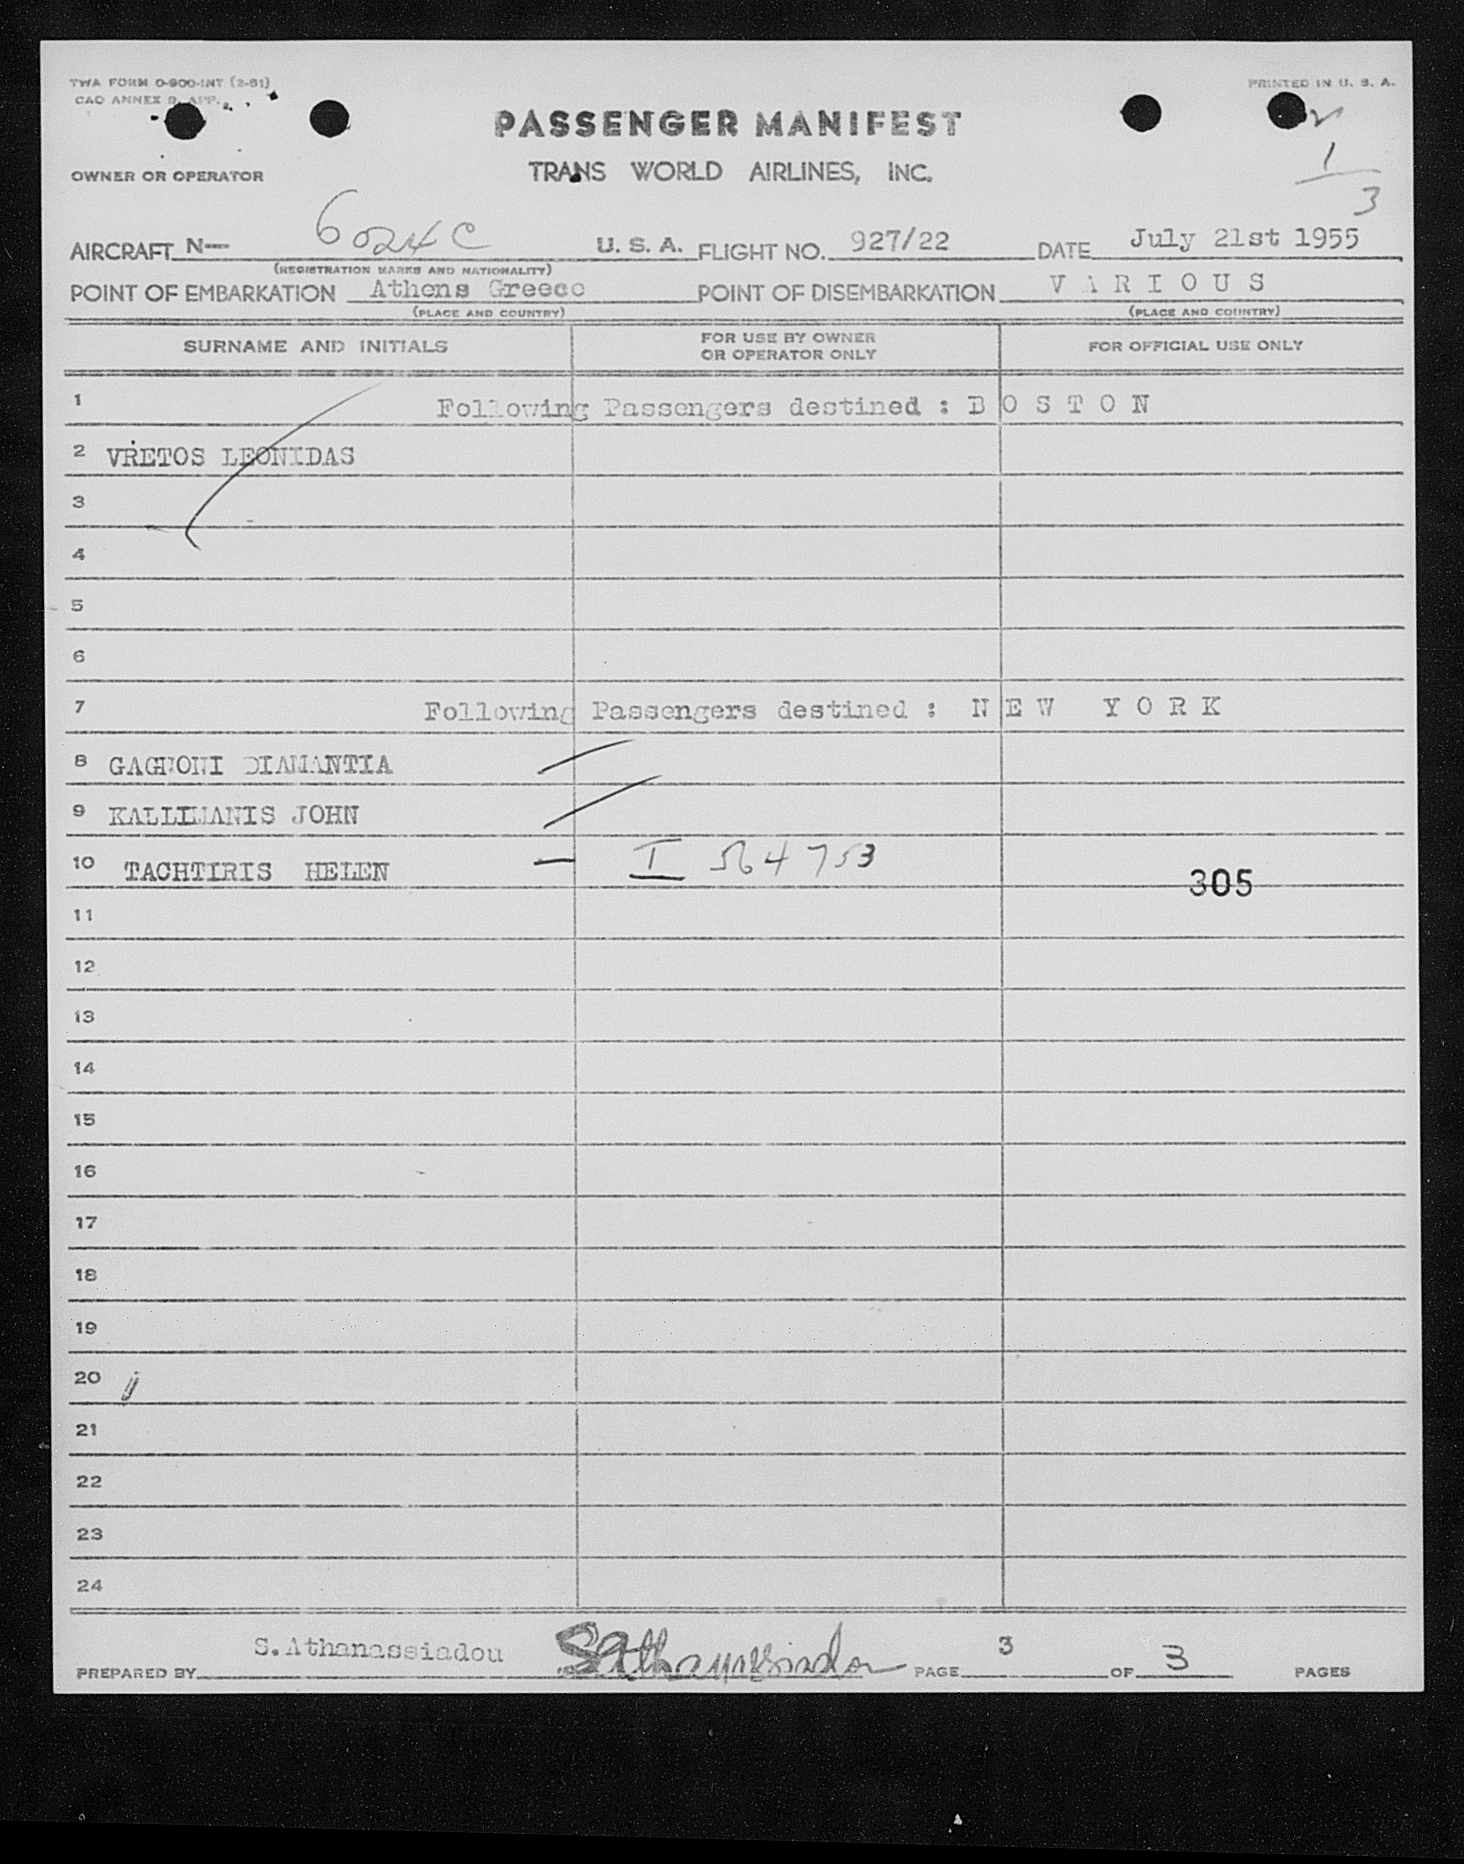 TWA FORM O-900-INT (2-51)
PRINTED IN U. S. A.
CAO ANNEX 9, APP.
PASSENGER MANIFEST
1
3
OWNER OR OPERATOR
TRANS WORLD AIRLINES, INC.
AIRCRAFT N— 6024C U. S. A. FLIGHT NO. 927/22 DATE July 21st 1955
(REGISTRATION MARKS AND NATIONALITY)
POINT OF EMBARKATION Athens Greece POINT OF DISEMBARKATION V A R I O U S
(PLACE AND COUNTRY) (PLACE AND COUNTRY)
SURNAME AND INITIALS FOR USE BY OWNER OR OPERATOR ONLY FOR OFFICIAL USE ONLY
1 Following Passengers destined : B O S T O N
2 VRETOS LEONIDAS
3
4
5
6
7 Following Passengers destined : N E W Y O R K
8 DIAMANTIA
9 KALLIMANIS JOHN
10 TACHTIRIS HELEN — I 564753
305
11
12
13
14
15
16
17
18
19
20
21
22
23
24
PREPARED BY S.Athanassiadou SAthanassiadou PAGE 3 OF 3 PAGES